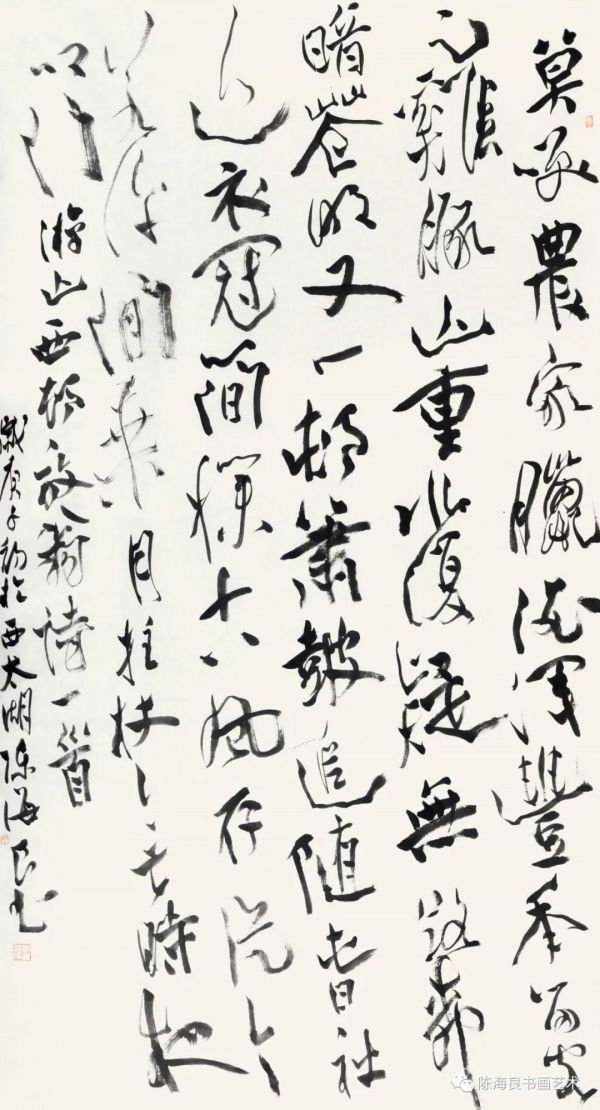 莫笑農家臘酒渾豐年留客
足雞豚山重水復疑無路柳
暗花明又一村簫鼓追隨春社
近衣冠簡樸古風存從今
若許閒乘月拄杖無時夜
叩門 游山西村放翁詩一首
歲庚子初於西太湖陳海良書
陈海良书画艺术